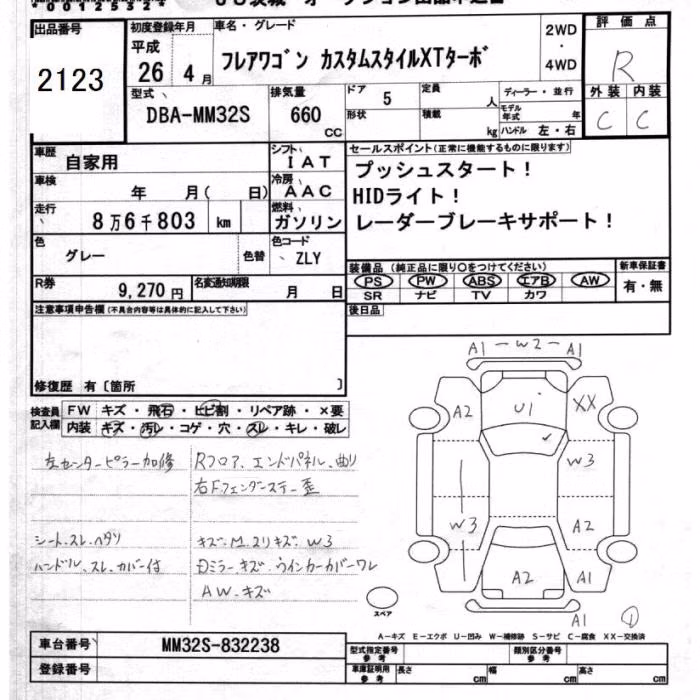 *00125324*
出品番号
2123
初度登録年月
平成
26 4月
車名・グレード
フレアワゴン カスタムスタイルXTターボ
2WD
・
4WD
評価点
R
外装 内装
C C
型式
DBA-MM32S
排気量
660
CC
ドア 5
形状
定員 人
積載 kg
ディーラー・並行
モデル年式 年
ハンドル 左・右
車歴
自家用
シフト
IAT
車検
年 月( 日)
冷房
AAC
走行
8万6千803 km
燃料
ガソリン
色
グレー
色替
色コード
ZLY
R券
9,270円
名変通知期限
月 日
セールスポイント(正常に機能するものに限ります)
プッシュスタート!
HIDライト!
レーダーブレーキサポート!
装備品(純正品に限り○をつけてください)
PS PW ABS エアB AW
SR ナビ TV カワ
新車保証書
有・無
後日品
注意事項申告欄(不具合内容等は具体的に記入して下さい)
修復歴 有〔箇所 〕
検査員記入欄
FW キズ・飛石・ヒビ割・リペア跡・×要
内装 キズ・汚レ・コゲ・穴・スレ・キレ・破レ
左センターピラー加修
Rフロア、エンドパネル、曲り
右Fフェンダーステー歪
シート、スレ、ヘタリ
ハンドル、スレ、カバー付
キズ、M、スリキズ、W3
Dミラーキズ、ウインカーカバーワレ
AW、キズ
A1 W2 A1
A2 U1 XX
W3
W3 A2
A2 A1
A1
スペア
①
A-キズ E-エクボ U-凹み W-補修跡 S-サビ C-腐食 XX-交換済
車台番号
MM32S-832238
登録番号
型式指定番号
参考
類別区分番号
参考
車庫証明用
参考
長さ cm
幅 cm
高さ cm